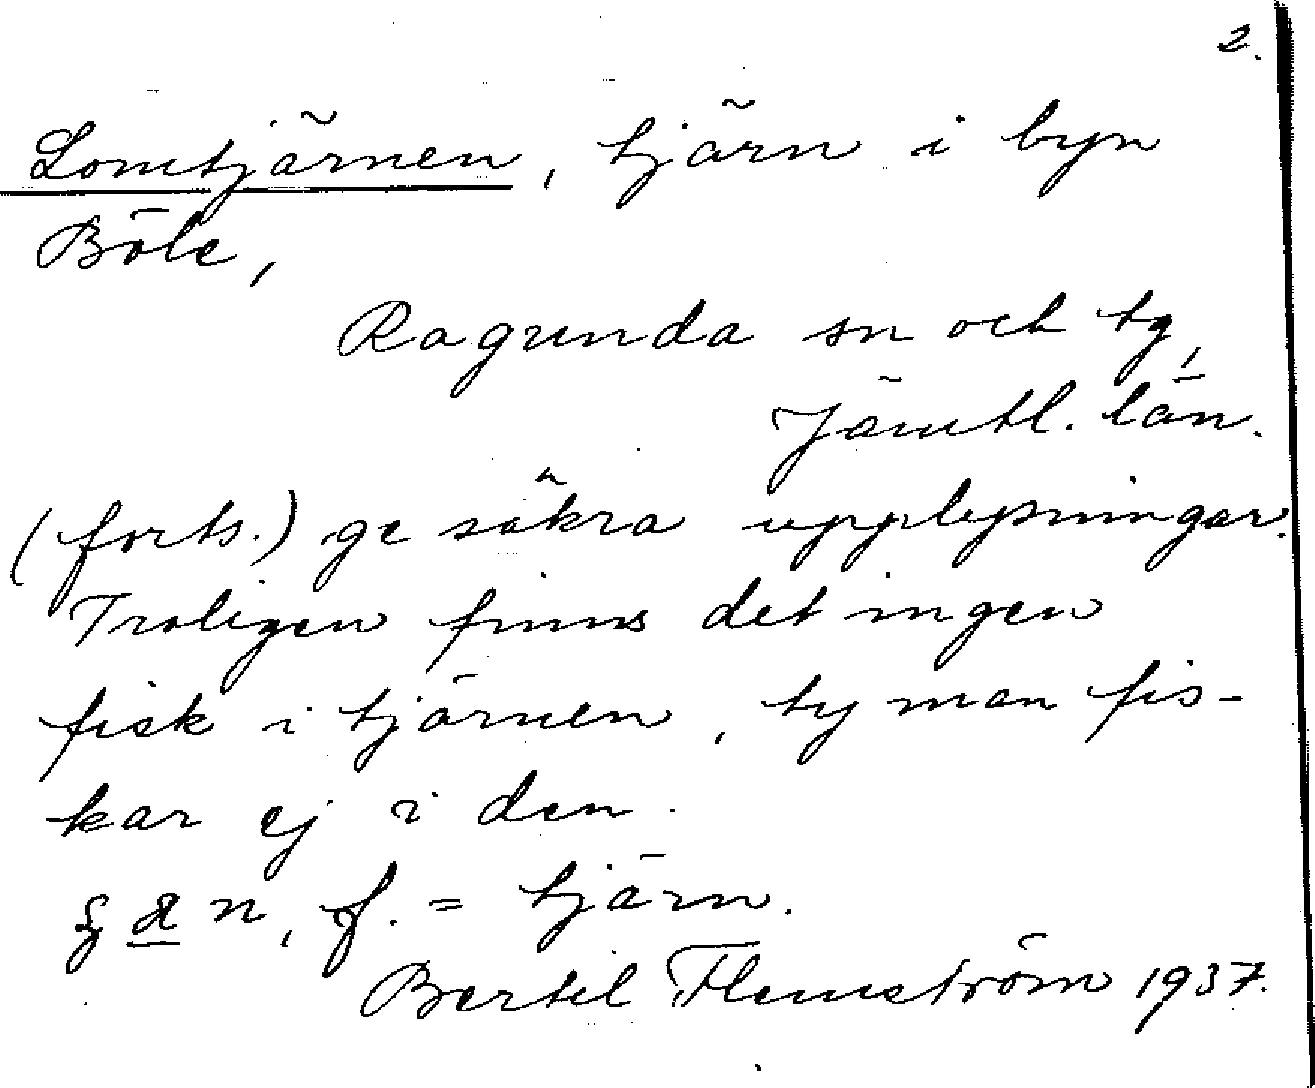 2.
Lomtjärnen, tjärn i byn
Böle,
Ragunda sn och tg,
Jämtl. län.
(forts.) ge säkra upplysningar.
Troligen finns det ingen
fisk i tjärnen, ty man fis-
kar ej i den.
f. = tjärn.
Bertil Flemström 1937.